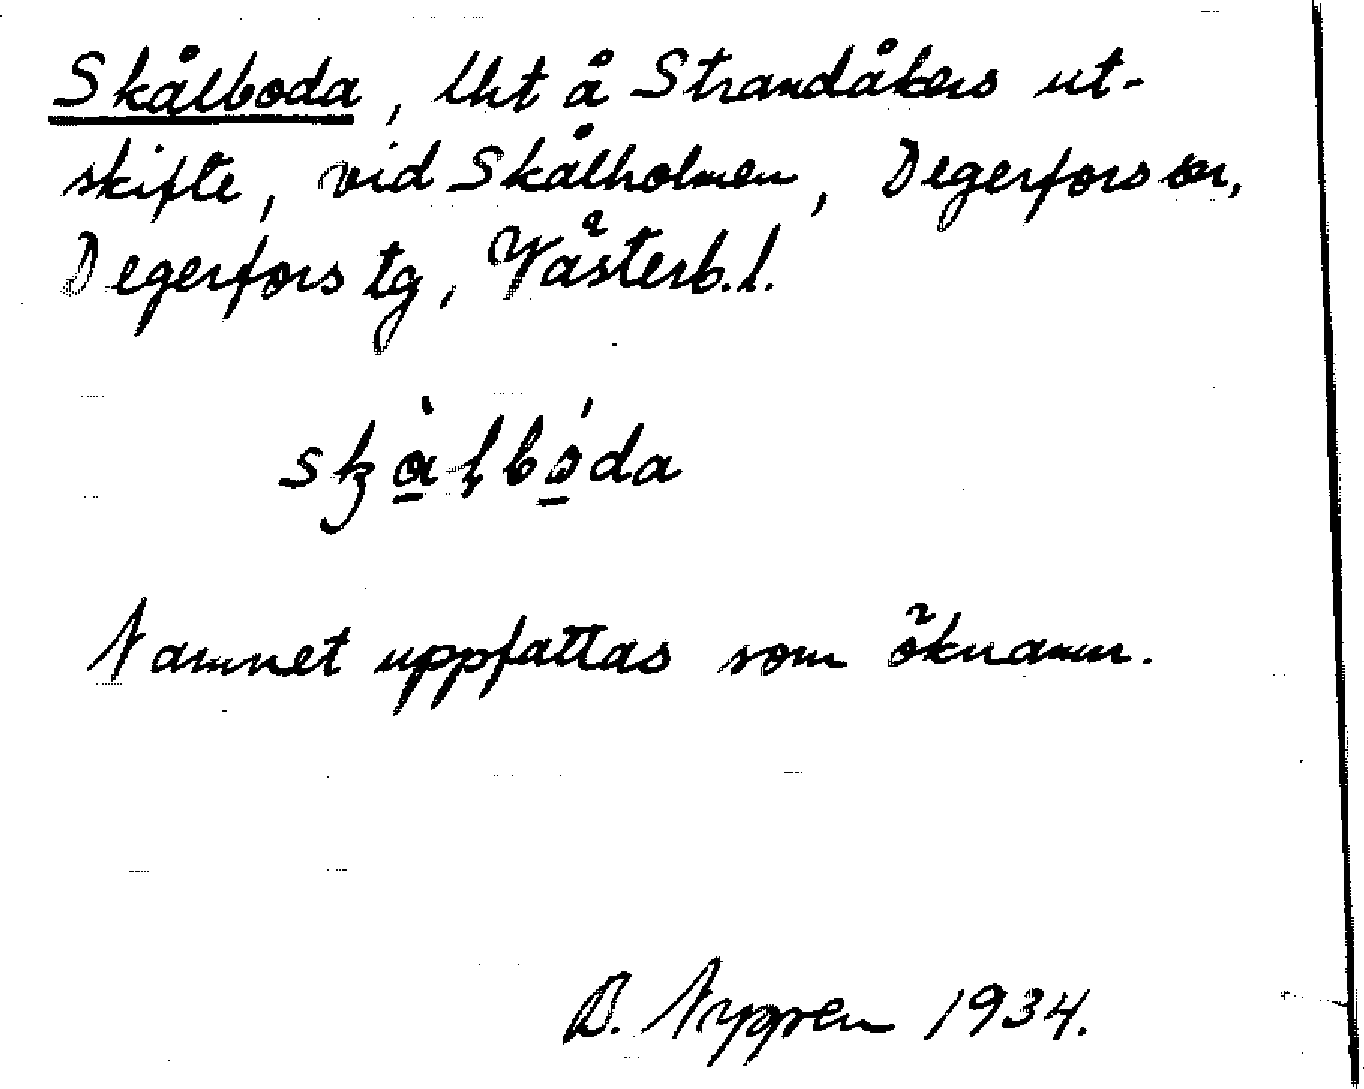 Skålboda, lht å Strandåkers ut-
skifte, vid Skålholmen, Degerfors sn,
Degerfors tg, Västerb. l.
skàlbóda
Namnet uppfattas som öknamn.
B. 1934.